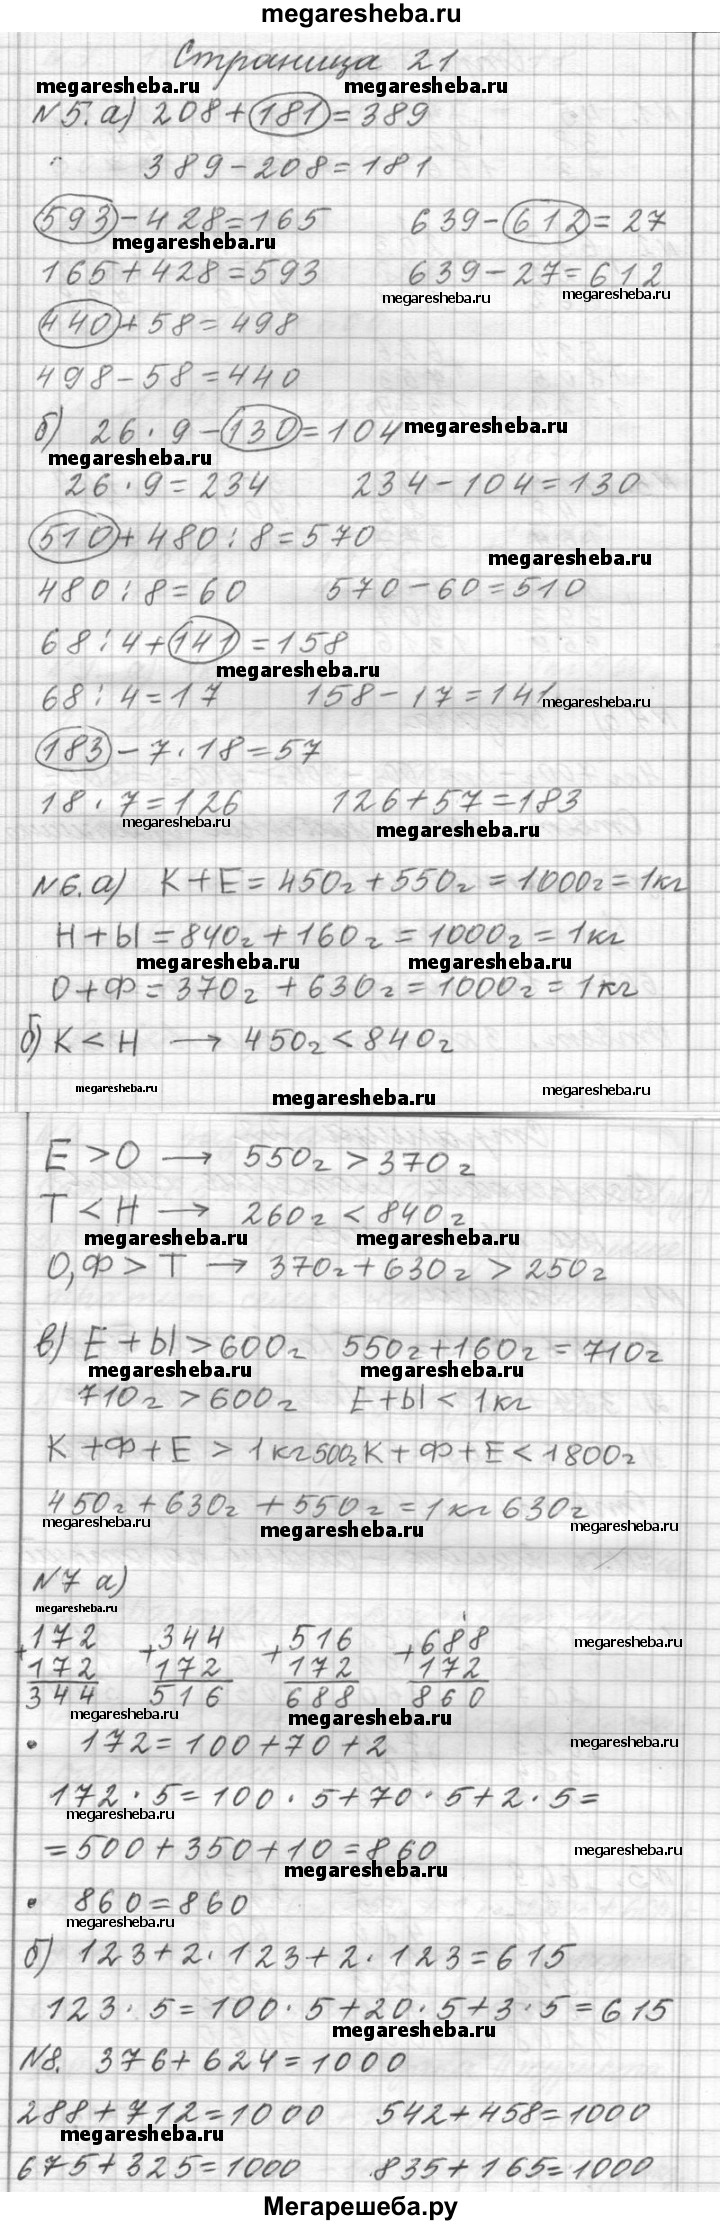 megaresheba.ru
Страница 21
megaresheba.ru megaresheba.ru
№5. а) 208+181=389
389-208=181
593-428=165 639-612=27
megaresheba.ru
165+428=593 639-27=612
megaresheba.ru megaresheba.ru
440+58=498
498-58=440
б) 26·9-130=104 megaresheba.ru
megaresheba.ru
26·9=234 234-104=130
510+480:8=570
megaresheba.ru
480:8=60 570-60=510
68:4+141=158
megaresheba.ru
68:4=17 158-17=141
megaresheba.ru
183-7·18=57
18·7=126 126+57=183
megaresheba.ru megaresheba.ru
№6. а) К+Е=450г+550г=1000г=1кг
Н+Ы=840г+160г=1000г=1кг
megaresheba.ru megaresheba.ru
О+Ф=370г+630г=1000г=1кг
б) К<Н → 450г<840г
megaresheba.ru megaresheba.ru megaresheba.ru
Е>О → 550г>370г
Т<Н → 260г<840г
megaresheba.ru megaresheba.ru
О,Ф>Т → 370г+630г>250г
в) Е+Ы>600г 550г+160г=710г
megaresheba.ru megaresheba.ru
710г>600г Е+Ы<1кг
К+Ф+Е>1кг500г К+Ф+Е<1800г
450г+630г+550г=1кг 630г
megaresheba.ru megaresheba.ru megaresheba.ru
№7 а)
megaresheba.ru
+172 +344 +516 +688
megaresheba.ru
172 172 172 172
344 516 688 860
megaresheba.ru megaresheba.ru
• 172=100+70+2
megaresheba.ru
172·5=100·5+70·5+2·5=
megaresheba.ru
=500+350+10=860
megaresheba.ru megaresheba.ru
• 860=860
megaresheba.ru
б) 123+2·123+2·123=615
123·5=100·5+20·5+3·5=615
megaresheba.ru
№8. 376+624=1000
288+712=1000 542+458=1000
megaresheba.ru
675+325=1000 835+165=1000
Мегарешеба.ру